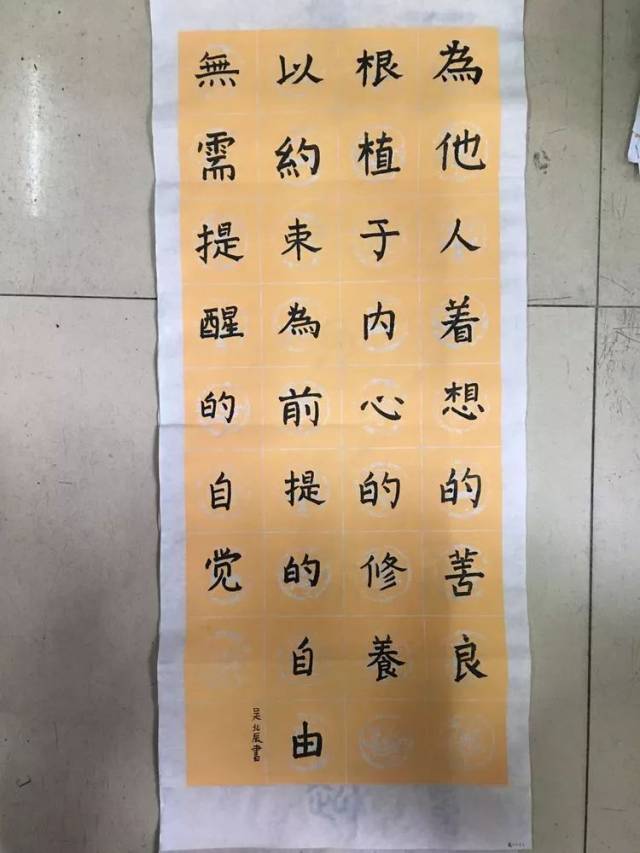 為他人着想的善良
根植于内心的修養
以約束為前提的自由
無需提醒的自觉
吴北辰書